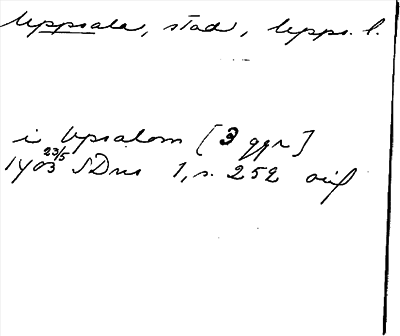 Uppsala, stad, Upps. l.
i Vpsalom [3 ggr]
1403 23/5 SDns 1, s. 252 avs